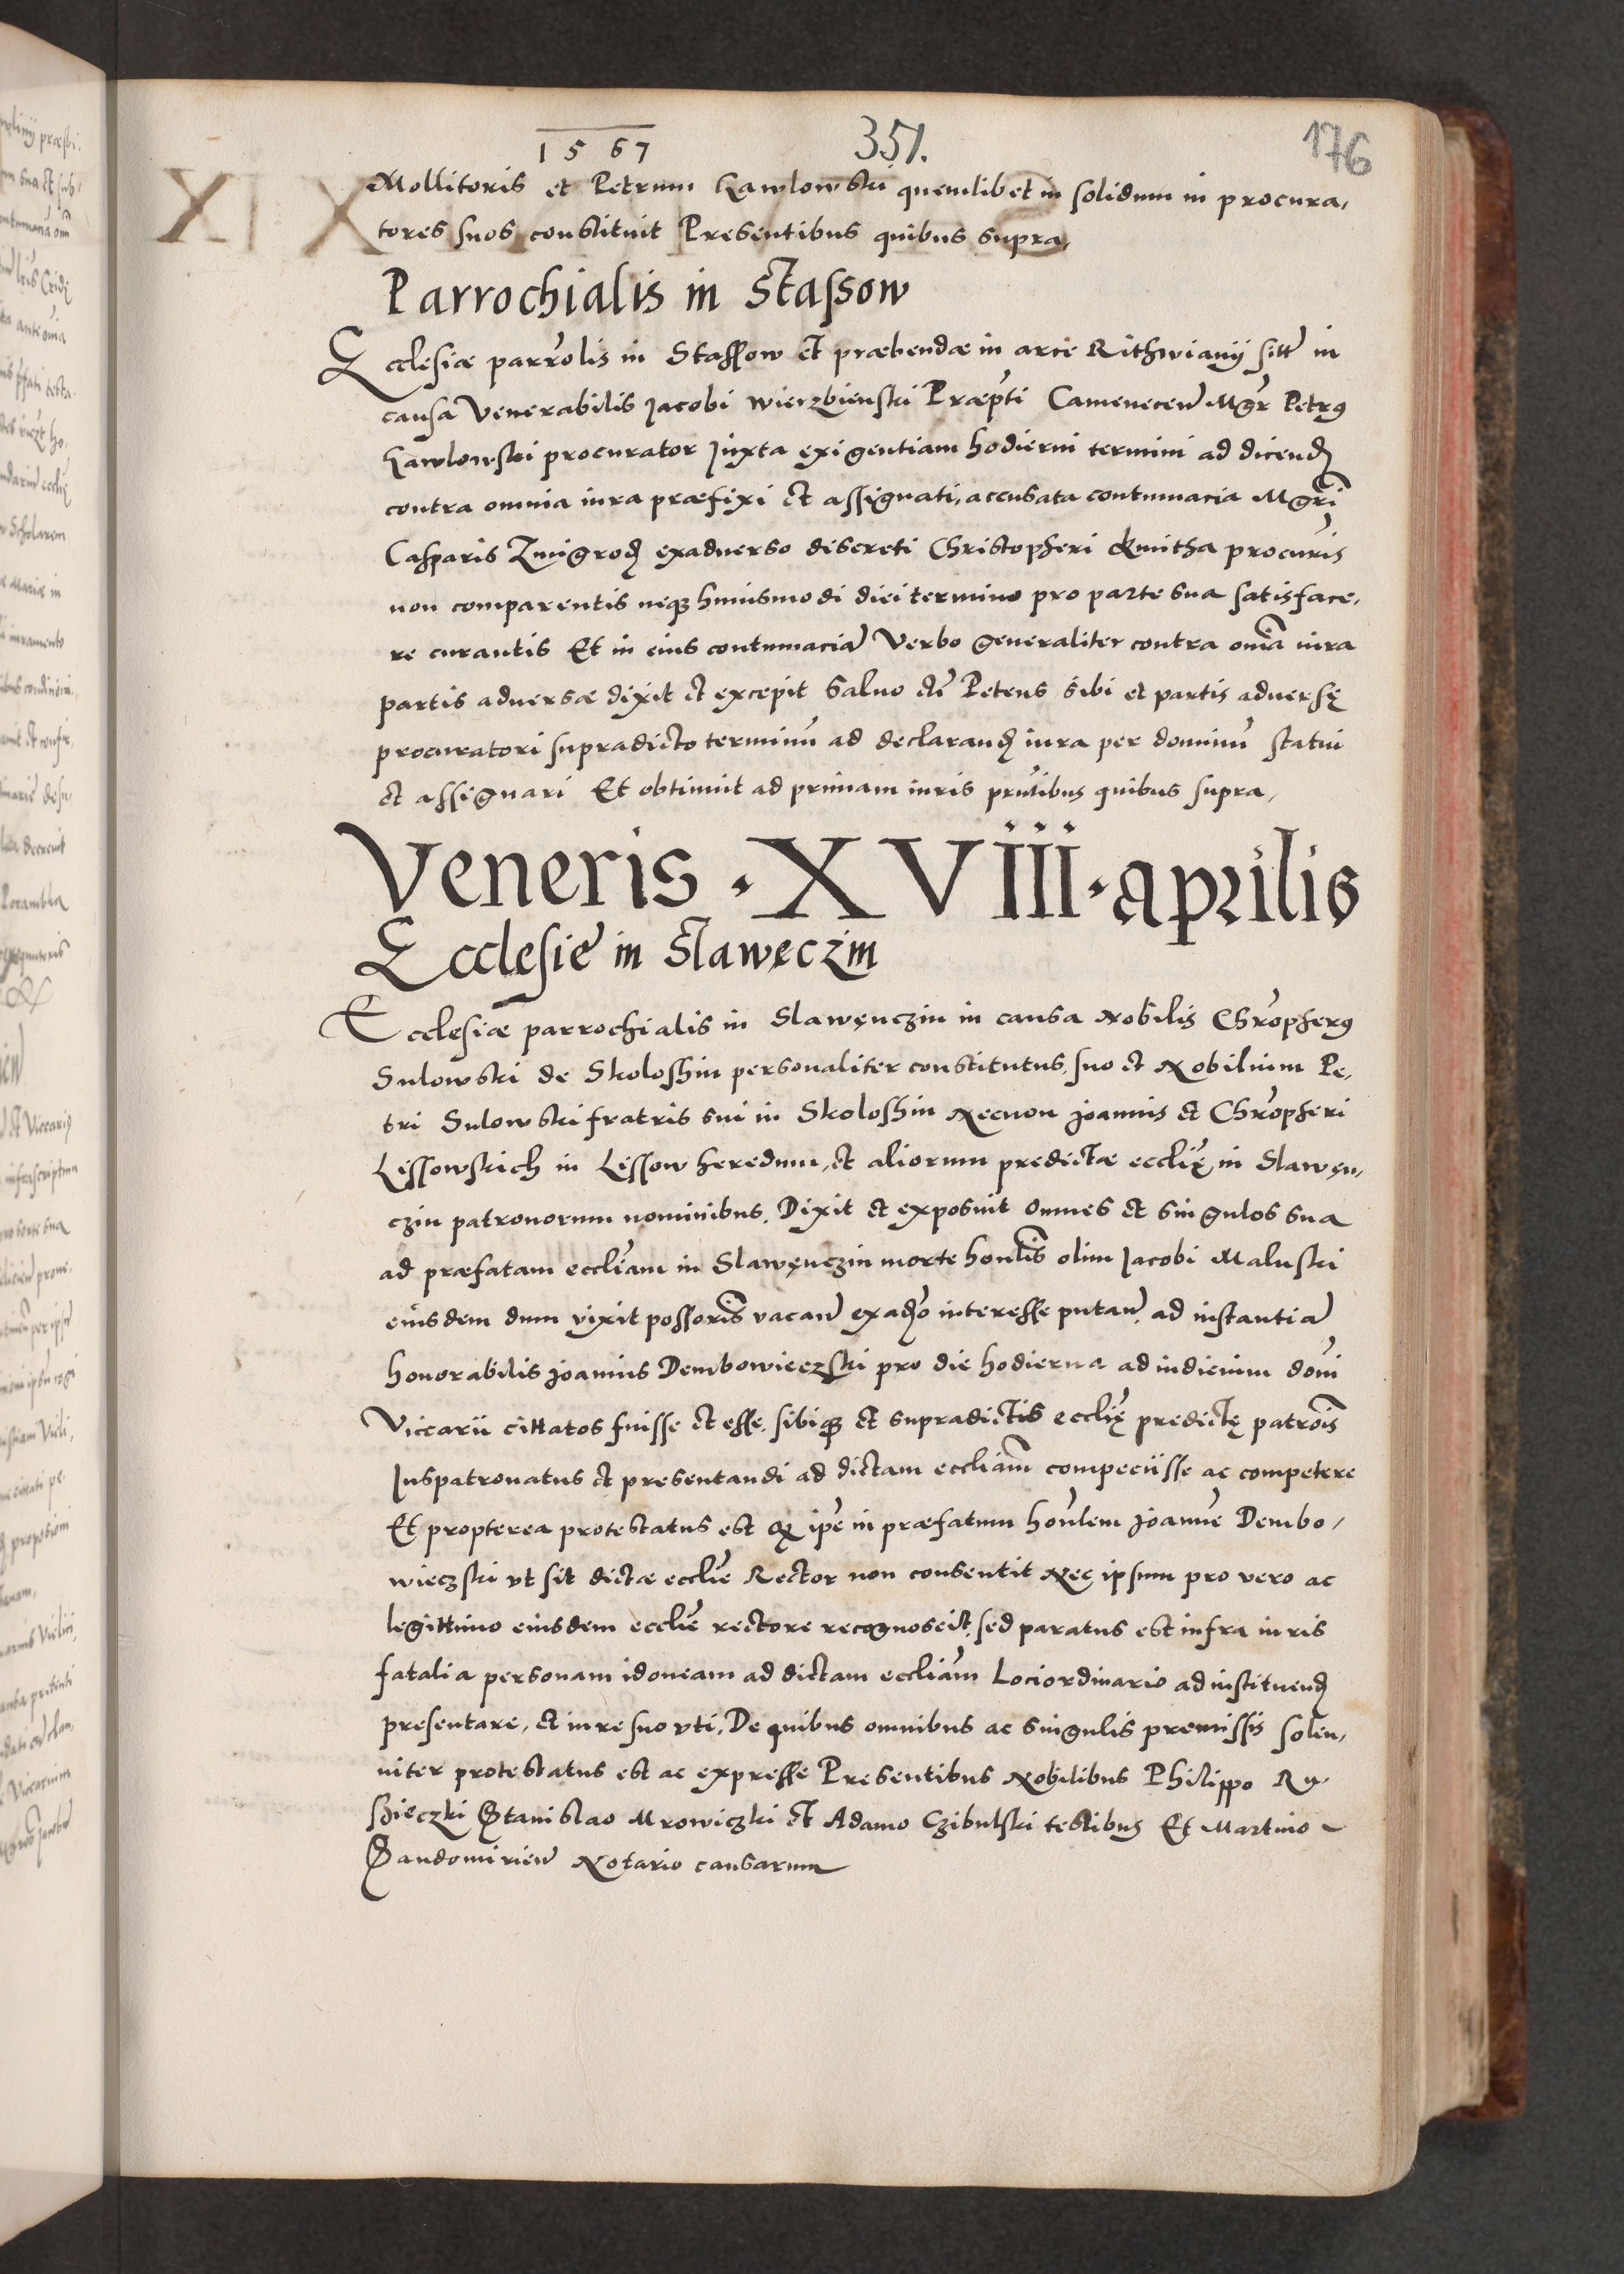 1567
351.
176
Mollitoris et Petrum Kawlowski quemlibet in solidum in procura,
tores suos constituit Presentibus quibus supra,
Parrochialis in Stassow
Ecclesiæ parrolis in Stassow et præbendæ in arce Rithwianÿ sitt in
causa Venerabilis Jacobi Wierzbienski Præpti Camenecen Mgr Petrus
Kawlowski procurator Juxta exigentiam hodierni termini ad dicend
contra omnia iura præfixi et assignati, accusata contumacia Mgri
Casparis Zmigrod exaduerso discreti Christopheri Kmitha procuris
non comparentis neque huiusmodi diei termino pro parte sua satisface,
re curantis Et in eius contumacia Verbo generaliter contra omia iura
partis aduersæ dixit et excepit Saluo etc Petens sibi et partis aduersę
procuratori supradicto terminu ad declarand iura per dominu statui
et assignari Et obtinuit ad primam iuris pntibus quibus supra,
Veneris . XVIII . aprilis
Ecclesie in Slaweczin
Ecclesiæ parrochialis in Slawęnczin in causa Nobilis Chropherus
Sulowski de Skolosshin personaliter constitutus, suo et Nobilium Pe,
tri Sulowski fratris sui in Skolosshin Necnon Joannis et Chropheri
Lissowskich in Lissow heredum, et aliorum predictæ ecclię in Slawęn,
czin patronorum nominibus, Dixit et exposuit omnes et singulos sua
ad præfatam eccliam in Slawęnczin morte honlis olim Jacobi Maluski
eiusdem dum vixit possoris vacan exaduo interesse putan, ad instantia
honorabilis Joannis Dembowieczski pro die hodierna ad iudicium domi
Viccarii cittatos fuisse et esse, sibique et supradictis ecclię predictę patrois
Juspatronatus et presentandi ad dictam eccliam compeciisse ac competere
Et propterea protestatus est q ipe in præfatum honlem Joanne Dembo,
wieczski vt sit dictæ ecclie Rector non consentit Nec ipsum pro vero ac
legittimo eiusdem ecclie rectore recognoscit, sed paratus est infra iuris
fatalia personam idoneam ad dictam eccliam Lociordinario ad instituend
presentare, et iure suo vti, De quibus omnibus ac singulis premissis solen,
niter protestatus est ac expresse Presentibus Nobilibus Philippo Ru
szieczki Stanislao Mrowiczki et Adamo Czibulski testibus Et Martino
Sandomirien Notario causarum